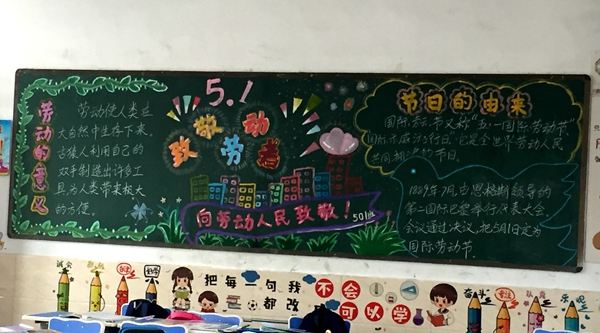 劳动的意义
劳动使人类在
大自然中生存下来,
古猿人利用自己的
双手制造出许多工
具为人类带来极大
的方便。
5.1
致敬劳动者
向劳动人民致敬!
501班
节日的由来
国际劳动节又称“五一国际劳动节”
共同拥有的节日。
1889年7月,由恩格斯领导的
第二国际巴黎举行代表大会
会议通过决议,把5月1日定为
国际劳动节。
把每一句我不会
都改我可以学